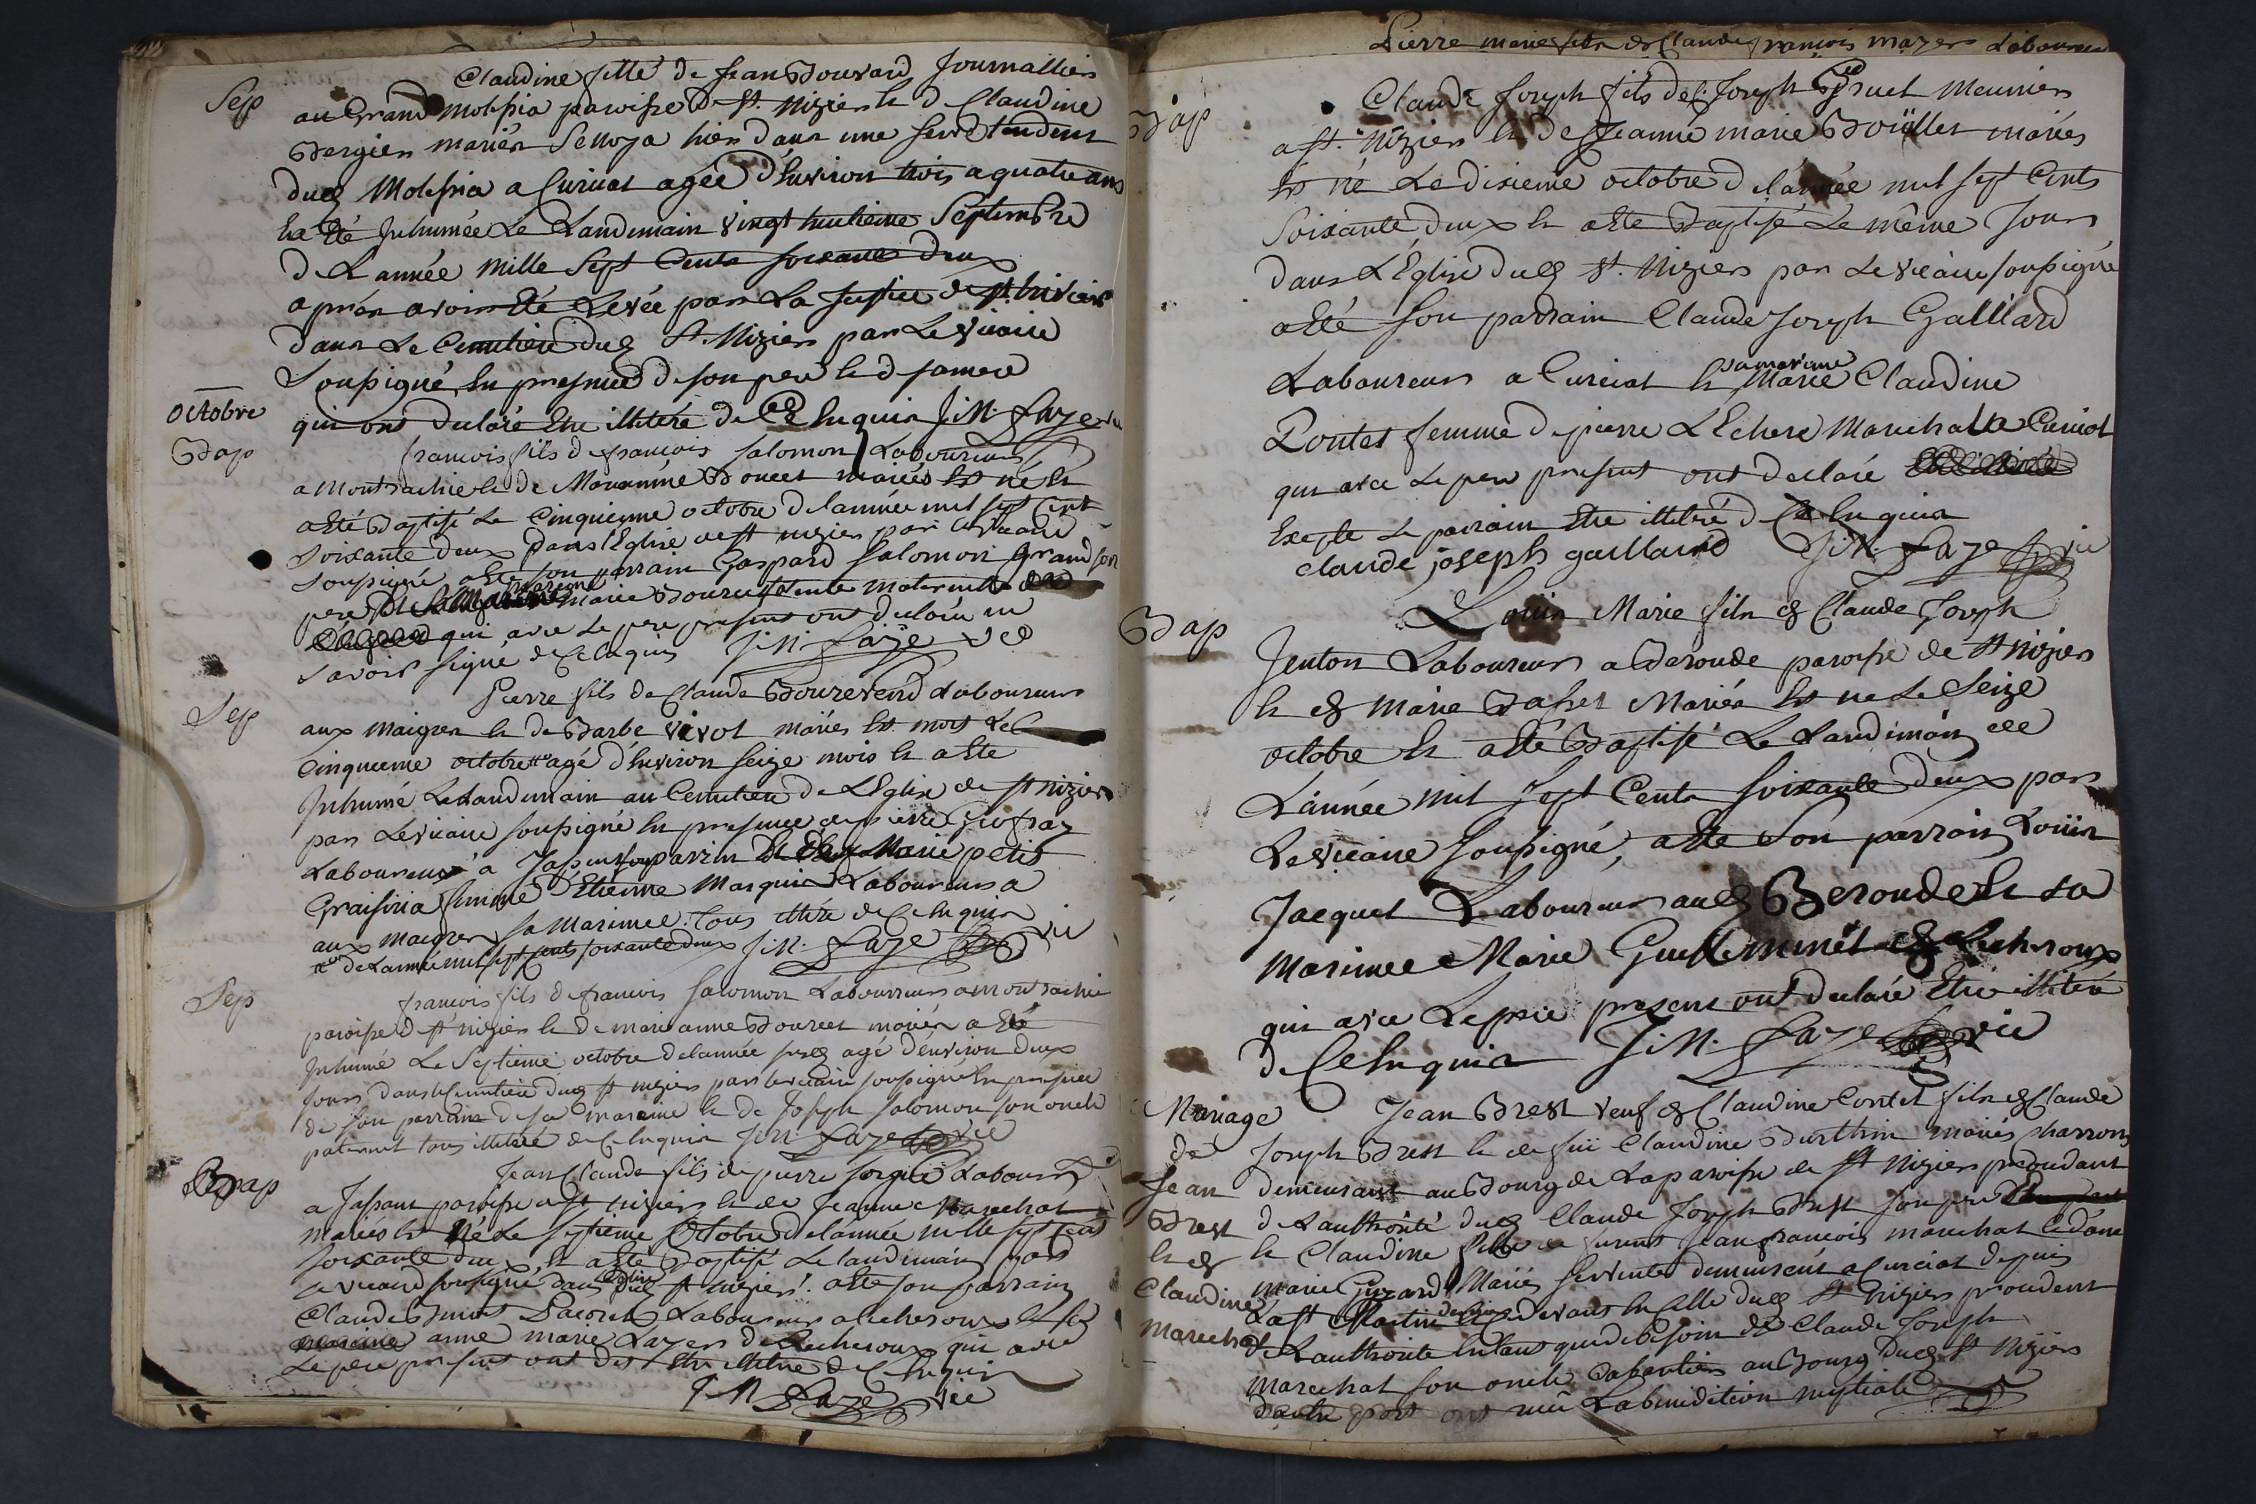 Sep
Claudine fille de Jean Bouvard Journallier
au Grand Molissia paroisse de St. Nizier et de Claudine
Bergier mariés Se noya hier dans une serve tendent
dud Molissia a Curciat agée d'Environ trois a quatre ans
Et a Eté Inhumée Le Landemain vingt huitieme Septembre
de L'année Mille Sept Cents soixante deux
aprés avoir Eté Levée par La Justice de St. trivier
dans Le Cemitiere dud St. Nizier par Le vicaire
Soussigné, En presence de son pere et de sa mere
qui ont declaré Etre illiteré de Ce Enquis J: N: Laze vic
Octobre
Bap
francois fils de francois Salomon Laboureur
a Montrachie et de Marianne Bourcet mariés Est né et
a Eté Baptisé Le Cinquieme octobre de l'année mil sept Cent
Soixante deux dans l'Eglise de st nizier par le vicaire
Soussigné a Eté son parrain Gaspard Salomon grand
pere et Sa Maraine marie Bourcet tente maternelle
qui avec Le pere presents ont declaré ne
savoir signé de Ce Enquis J: N: Laze vic
Sep
Pierre fils de Claude Bourevend Laboureur
aux maigres et de Barbe vivot mariés Est mort Le
Cinquieme octobre agé d'Environ seize mois et a Eté
Inhumé Le Landemain au Cemitiere de L'Eglise de st nizier
par Le vicaire soussigné En presence de pierre
Laboureur a son parrin Et Marie petit
femme d'Etienne Marquis Laboureur a
aux maigres sa Marinne. tous illiteré de Ce Enquis
de L'année mil sept cents soixante deux J: N: Laze vic
Sep
francois fils de francois Salomon Laboureur a montrachie
paroisse de st nizier et de marie anne Bourcet mariés a Eté
Inhumé Le Septieme octobre de l'année agé d'environ deux
Jours dans le Cemitiere dud st nizier par le vicaire soussigné En presence
de son parrain de sa maraine et de Joseph Salomon son oncle
paternel tous illiteré de Ce Enquis J: N: Laze vic
Bap
Jean Claude fils de pierre Laboureur
a Jassans paroisse de st nizier et de Jeanne Marechal
Mariés Est Né Le septieme Octobre de l'année mille sept Cent
soixante deux Et a Eté Baptisé Le landemain par
Le vicaire soussigné dans Eglise dud st nizier. a Eté son parrain
Claude Laboureur a lecheroux et sa
maraine anne marie Lazer de Lecheroux qui avec
Le pere presents ont dit Etre illiteré de Ce Enquis
J: N Laze vic
Pierre marie fils de Claude francois mazer Laboureur
Bap
Claude Joseph fils de Joseph Gruet Meunier
a st. Nizier Et de Jeanne marie Boüllet mariés
Est né Le dixieme octobre de l'année mil sept Cents
Soixante deux Et a Eté Baptisé Le même Jour
dans L'Eglise dud st. Nizier par Le vicaire soussigné
a Eté Son parrain Claude Joseph Gaillard
Laboureur a Curciat Et sa maraine Marie Claudine
Pontet femme de pierre L'Echere Marechal a Curciat
qui avec Le pere presents ont declaré
Excepte Le parrain Etre illiteré de Ce Enquis
claude joseph gaillard J: N: Laze vic
Bap
Loüis Marie fils de Claude Joseph
Jenton Laboureur a Beronde paroisse de St nizier
Et de Marie Basset Mariés Est né Le Seize
octobre Et a Eté Baptisé Le Landemain de
L'année mil Sept Cents soixante deux par
Le vicaire Soussigné, a Eté Son parrain Loüis
Jacquet Laboureur aud Beronde Et sa
Marinne Marie Guilleminet de Lecheroux
qui avec Le pere presens ont declaré Etre illiteré
de Ce Enquis J: N. Laze vic
Mariage
de
Jean
Brest
et de
Claudine
Marechal
Jean Brest veuf de Claudine Contet fils de Claude
Joseph Brest et de fuë Claudine Burthin mariés charron
demeurant au Bourg de La paroisse de St Nizier procedant
de L'authorité dud Claude Joseph Brest son pere
Et Claudine fille de Jean francois marechal Et d'anne
marie Guzard Mariés servente demeurent a Curciat depuis
La st Martin derniere devant En Celle dud st nizier procedent
de L'authorite En tant que de besoin de Claude Joseph
Marechal son oncle Sabotier au Bourg dud st Nizier
d'autre part ont reçu La benediction nuptiale